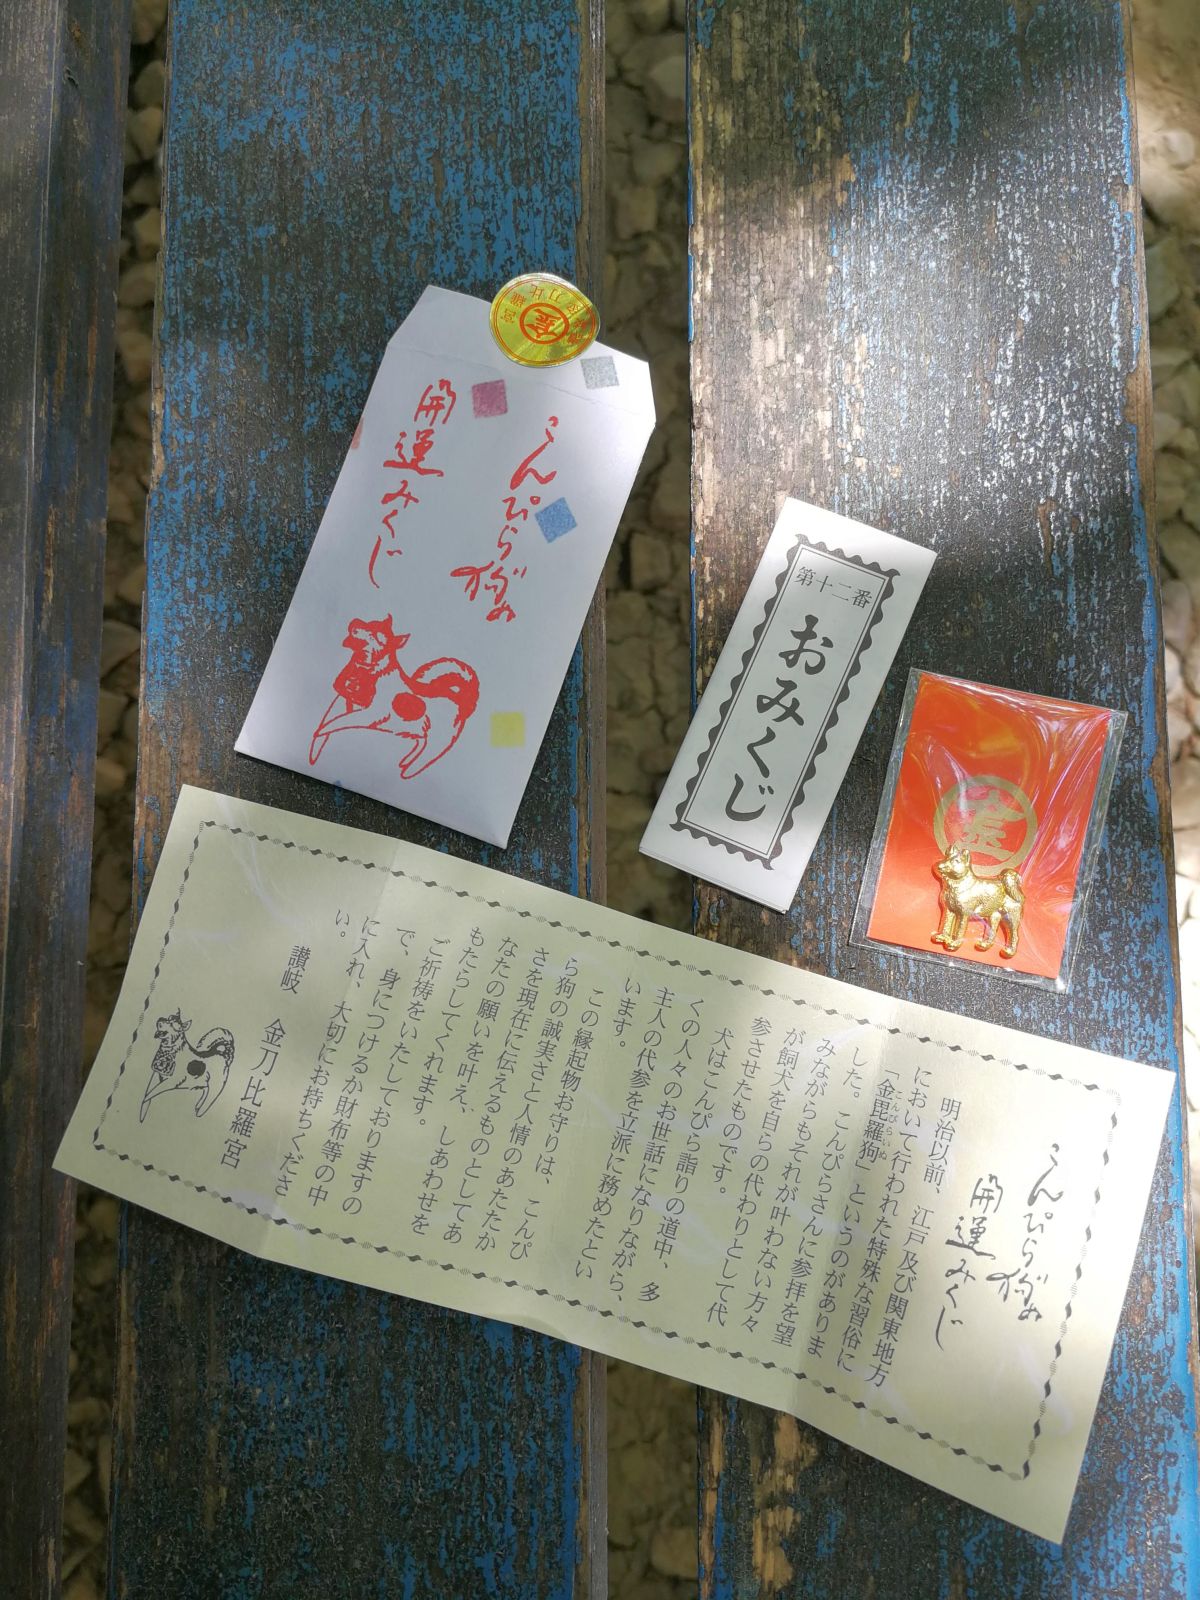 こんぴら狗の
開運みくじ
第十二番
おみくじ
金
こんぴら狗の
開運みくじ
明治以前、江戸及び関東地方
において行われた特殊な習俗に
「金毘羅狗」というのがありま
こんぴらいぬ
した。こんぴらさんに参拝を望
みながらもそれが叶わない方々
が飼犬を自らの代わりとして代
参させたものです。
犬はこんぴら詣りの道中、多
くの人々のお世話になりながら、
主人の代参を立派に務めたとい
います。
この縁起物お守りは、こんぴ
ら狗の誠実さと人情のあたたか
さを現在に伝えるものとしてあ
なたの願いを叶え、しあわせを
もたらしてくれます。
ご祈祷をいたしておりますの
で、身につけるか財布等の中
に入れ、大切にお持ちくださ
い。
讃岐 金刀比羅宮